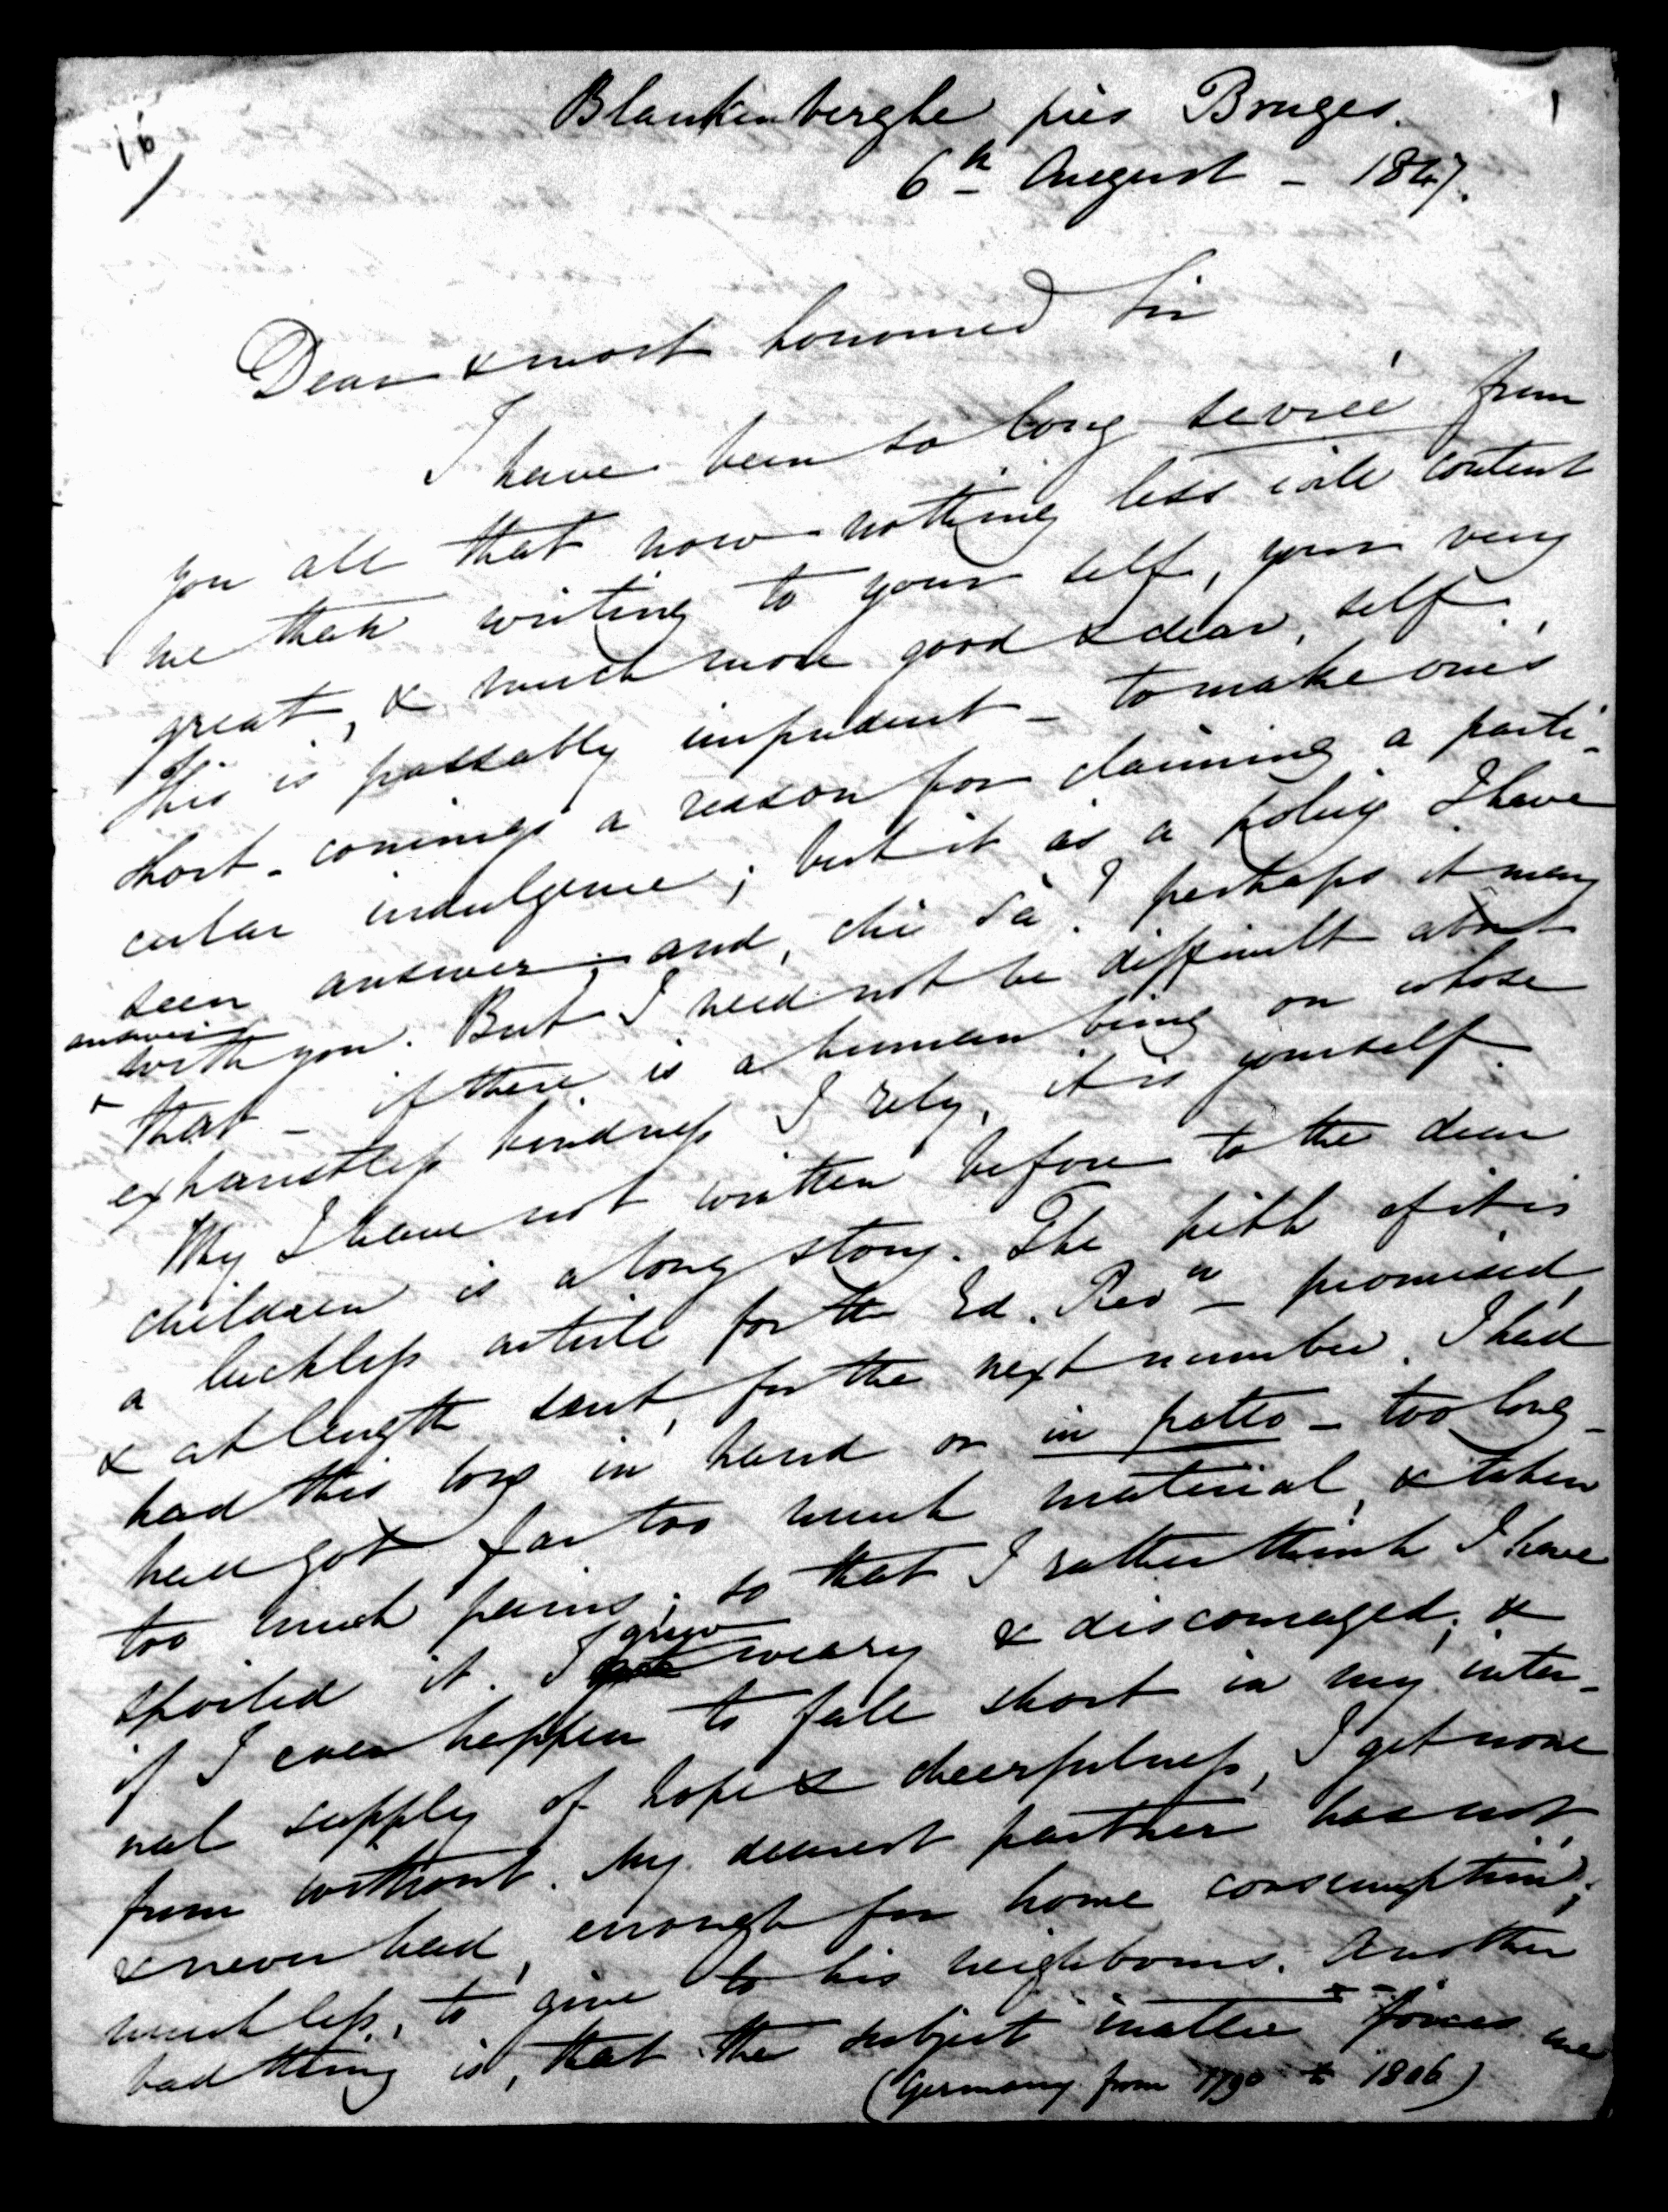 16
1
Blankenberghe près Bruges.
6th August - 1847.
Dear & most honoured Sir
I have been so long sevrée from
you all that now nothing less will content
me than writing to your self, your very
great, & much more good & dear, self.
This is passably impudent - to make one's
short-comings a reason for claiming a parti-
cular indulgence; but it is a policy I have
seen answer - and, chi sà? perhaps it may
answer
with you. But I need not be difficult about
that - if there is a human being on whose
exhaustless kindness I rely, it is yourself.
Why I have not written before to the dear
children is a long story. The pith of it is
a luckless article for the Ed. Revw - promised,
& at length sent, for the next number. I had
had this long in hand or in petto - too long -
had got far too much material, & taken
too much pains; so that I rather think I have
spoiled it. I grew weary & discouraged; &
if I ever happen to fall short in my inter-
nal supply of hope & cheerfulness, I get none
from without. My dearest partner has not,
& never had, enough for home consumption;
much less, to give to his neighbours. Another
bad thing is, that the subject matter forces me
(Germany from 1790 to 1806)